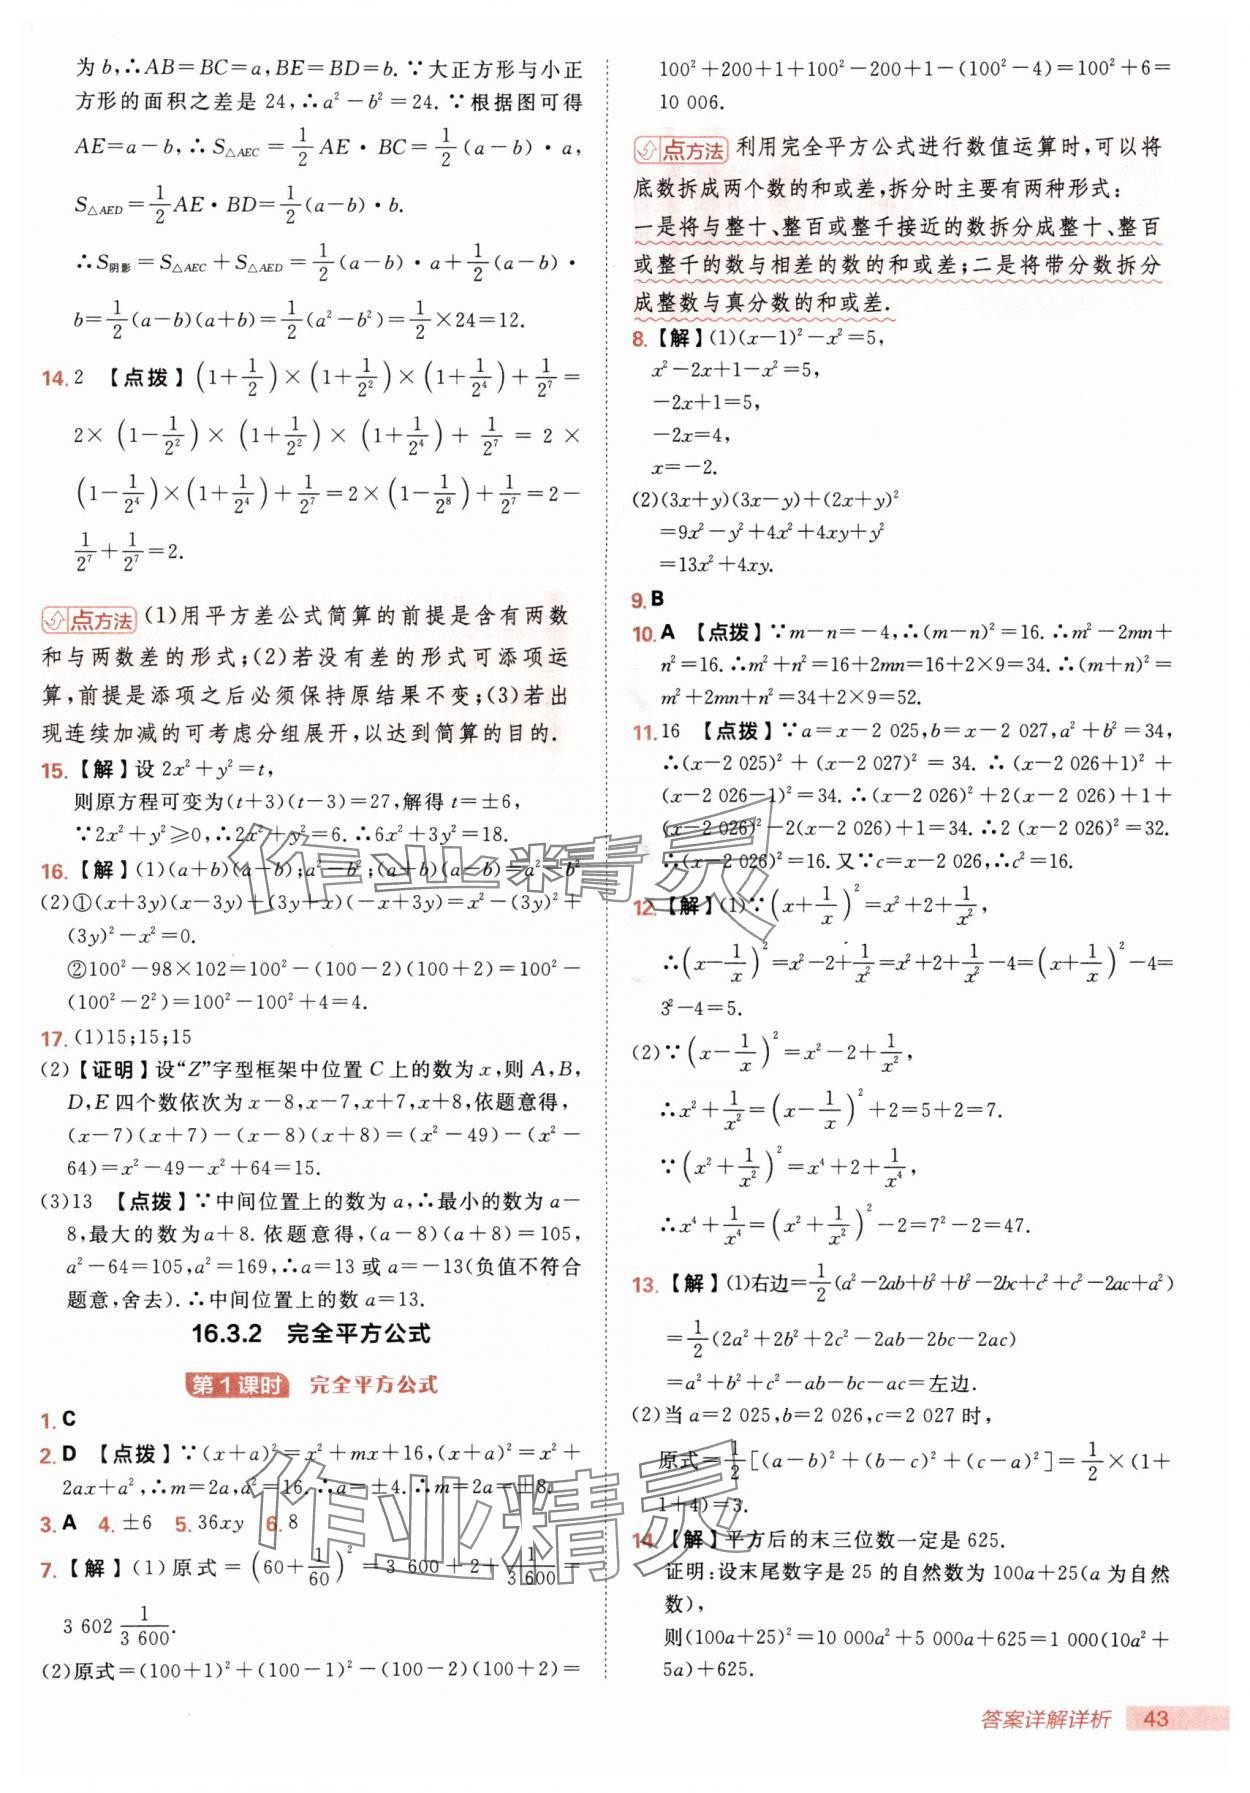 为b,∴AB=BC=a,BE=BD=b. ∵大正方形与小正
方形的面积之差是24,∴a²-b²=24. ∵根据图可得
AE=a-b,∴S△AEC=1/2 AE·BC=1/2(a-b)·a,
S△AED=1/2 AE·BD=1/2(a-b)·b.
∴S阴影=S△AEC+S△AED=1/2(a-b)·a+1/2(a-b)·
b=1/2(a-b)(a+b)=1/2(a²-b²)=1/2×24=12.
14. 2 【点拨】(1+1/2)×(1+1/2²)×(1+1/2⁴)+1/2⁷=
2×(1-1/2²)×(1+1/2²)×(1+1/2⁴)+1/2⁷=2×
(1-1/2⁴)×(1+1/2⁴)+1/2⁷=2×(1-1/2⁸)+1/2⁷=2-
1/2⁷+1/2⁷=2.
点方法 (1)用平方差公式简算的前提是含有两数
和与两数差的形式;(2)若没有差的形式可添项运
算,前提是添项之后必须保持原结果不变;(3)若出
现连续加减的可考虑分组展开,以达到简算的目的.
15. 【解】设2x²+y²=t,
则原方程可变为(t+3)(t-3)=27,解得t=±6,
∵2x²+y²≥0,∴2x²+y²=6. ∴6x²+3y²=18.
16. 【解】(1)(a+b)(a-b);a²-b²;(a+b)(a-b)=a²-b²
(2)①(x+3y)(x-3y)+(3y+x)(-x+3y)=x²-(3y)²+
(3y)²-x²=0.
②100²-98×102=100²-(100-2)(100+2)=100²-
(100²-2²)=100²-100²+4=4.
17. (1)15;15;15
(2)【证明】设“Z”字型框架中位置C上的数为x,则A,B,
D,E四个数依次为x-8,x-7,x+7,x+8,依题意得,
(x-7)(x+7)-(x-8)(x+8)=(x²-49)-(x²-
64)=x²-49-x²+64=15.
(3)13 【点拨】∵中间位置上的数为a,∴最小的数为a-
8,最大的数为a+8. 依题意得,(a-8)(a+8)=105,
a²-64=105,a²=169,∴a=13或a=-13(负值不符合
题意,舍去). ∴中间位置上的数a=13.
16.3.2 完全平方公式
第1课时 完全平方公式
1. C
2. D 【点拨】∵(x+a)²=x²+mx+16,(x+a)²=x²+
2ax+a²,∴m=2a,a²=16. ∴a=±4. ∴m=2a=±8.
3. A 4. ±6 5. 36xy 6. 8
7. 【解】(1)原式=(60+1/60)²=3 600+2+1/3 600=
3 602 1/3 600.
(2)原式=(100+1)²+(100-1)²-(100-2)(100+2)=
100²+200+1+100²-200+1-(100²-4)=100²+6=
10 006.
点方法 利用完全平方公式进行数值运算时,可以将
底数拆成两个数的和或差,拆分时主要有两种形式:
一是将与整十、整百或整千接近的数拆分成整十、整百
或整千的数与相差的数的和或差;二是将带分数拆分
成整数与真分数的和或差.
8. 【解】(1)(x-1)²-x²=5,
x²-2x+1-x²=5,
-2x+1=5,
-2x=4,
x=-2.
(2)(3x+y)(3x-y)+(2x+y)²
=9x²-y²+4x²+4xy+y²
=13x²+4xy.
9. B
10. A 【点拨】∵m-n=-4,∴(m-n)²=16. ∴m²-2mn+
n²=16. ∴m²+n²=16+2mn=16+2×9=34. ∴(m+n)²=
m²+2mn+n²=34+2×9=52.
11. 16 【点拨】∵a=x-2 025,b=x-2 027,a²+b²=34,
∴(x-2 025)²+(x-2 027)²=34. ∴(x-2 026+1)²+
(x-2 026-1)²=34. ∴(x-2 026)²+2(x-2 026)+1+
(x-2 026)²-2(x-2 026)+1=34. ∴2(x-2 026)²=32.
∴(x-2 026)²=16. 又∵c=x-2 026,∴c²=16.
12. 【解】(1)∵(x+1/x)²=x²+2+1/x²,
∴(x-1/x)²=x²-2+1/x²=x²+2+1/x²-4=(x+1/x)²-4=
3²-4=5.
(2)∵(x-1/x)²=x²-2+1/x²,
∴x²+1/x²=(x-1/x)²+2=5+2=7.
∵(x²+1/x²)²=x⁴+2+1/x⁴,
∴x⁴+1/x⁴=(x²+1/x²)²-2=7²-2=47.
13. 【解】(1)右边=1/2(a²-2ab+b²+b²-2bc+c²+c²-2ac+a²)
=1/2(2a²+2b²+2c²-2ab-2bc-2ac)
=a²+b²+c²-ab-bc-ac=左边.
(2)当a=2 025,b=2 026,c=2 027时,
原式=1/2[(a-b)²+(b-c)²+(c-a)²]=1/2×(1+
1+4)=3.
14. 【解】平方后的末三位数一定是625.
证明:设末尾数字是25的自然数为100a+25(a为自然
数),
则(100a+25)²=10 000a²+5 000a+625=1 000(10a²+
5a)+625.
答案详解详析 43
作业精灵
作业精灵